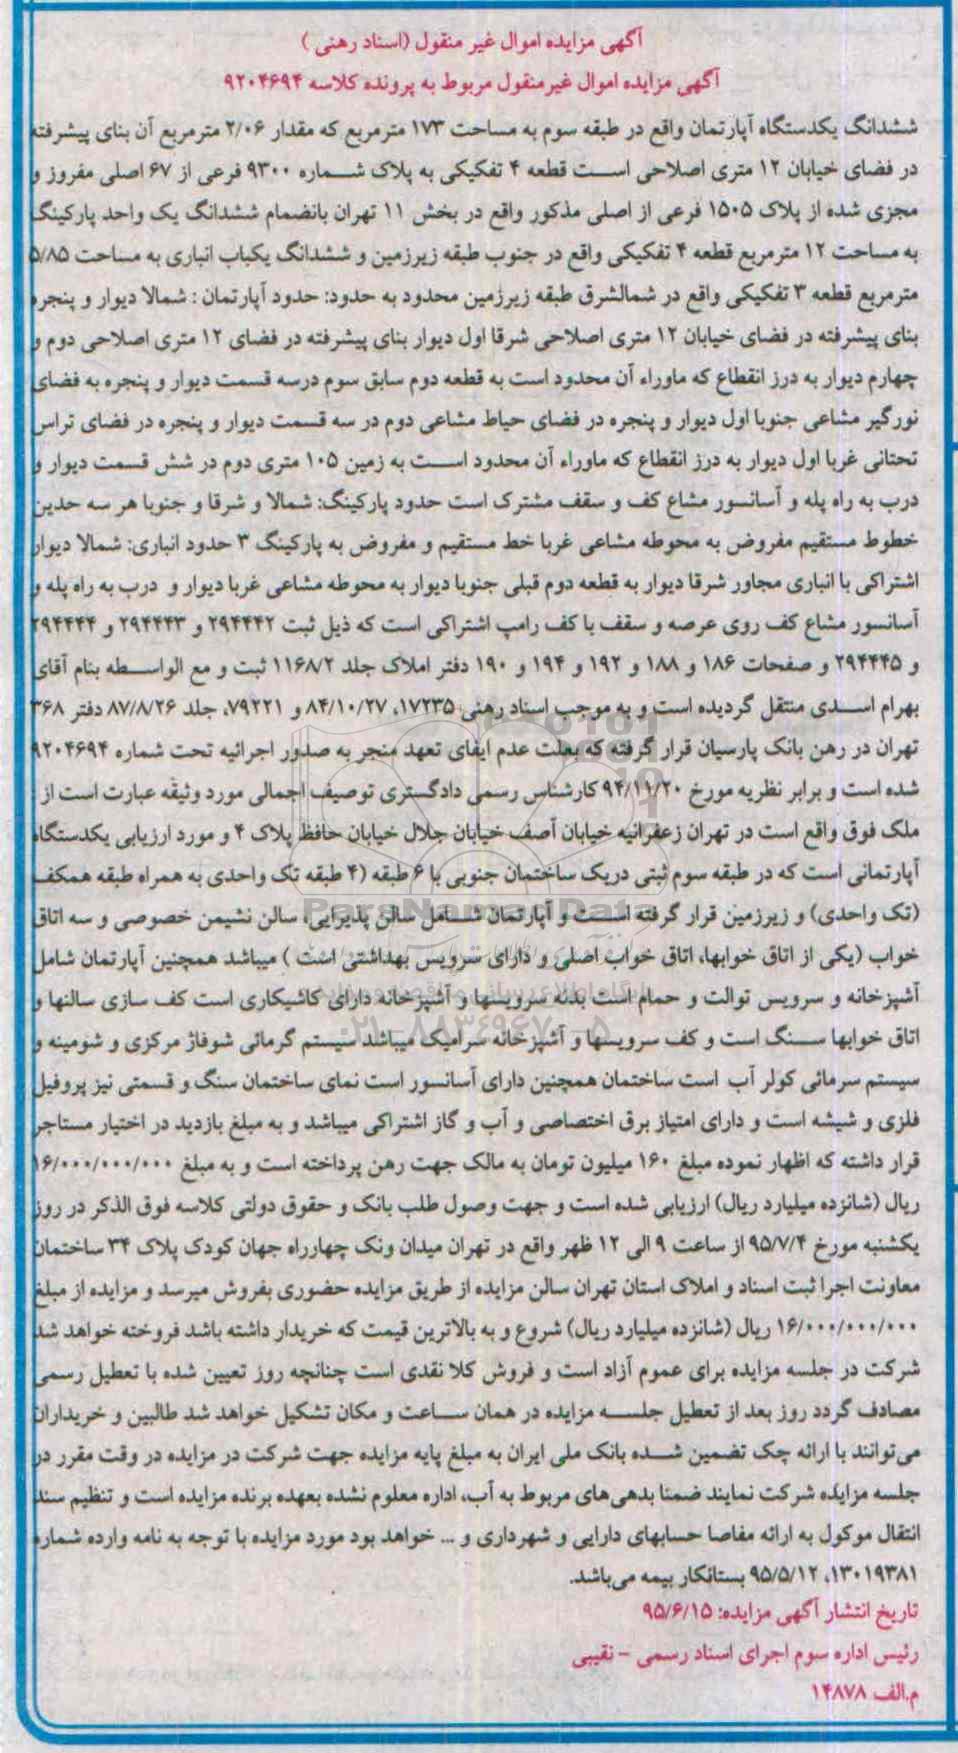 آگهی مزایده اموال غیر منقول (اسناد رهنی )
آگهی مزایده اموال غیرمنقول مربوط به پرونده کلاسه ۹۲۰۴۶۹۴
ششدانگ یکدستگاه آپارتمان واقع در طبقه سوم به مساحت ۱۷۳ مترمربع که مقدار ۲/۰۶ مترمربع آن بنای پیشرفته
در فضای خیابان ۱۲ متری اصلاحی است قطعه ۴ تفکیکی به پلاک شماره ۹۳۰۰ فرعی از ۶۷ اصلی مفروز و
مجزی شده از پلاک ۱۵۰۵ فرعی از اصلی مذکور واقع در بخش ۱۱ تهران بانضمام ششدانگ یک واحد پارکینگ
به مساحت ۱۲ مترمربع قطعه ۴ تفکیکی واقع در جنوب طبقه زیرزمین و ششدانگ یکباب انباری به مساحت ۵/۸۵
مترمربع قطعه ۳ تفکیکی واقع در شمالشرق طبقه زیرزمین محدود به حدود: حدود آپارتمان : شمالا دیوار و پنجره
بنای پیشرفته در فضای خیابان ۱۲ متری اصلاحی شرقا اول دیوار بنای پیشرفته در فضای ۱۲ متری اصلاحی دوم و
چهارم دیوار به درز انقطاع که ماوراء آن محدود است به قطعه دوم سابق سوم درسه قسمت دیوار و پنجره به فضای
نورگیر مشاعی جنوبا اول دیوار و پنجره در فضای حیاط مشاعی دوم در سه قسمت دیوار و پنجره در فضای تراس
تحتانی غربا اول دیوار به درز انقطاع که ماوراء آن محدود است به زمین ۱۰۵ متری دوم در شش قسمت دیوار و
درب به راه پله و آسانسور مشاع کف و سقف مشترک است حدود پارکینگ: شمالا و شرقا و جنوبا هر سه حدین
خطوط مستقیم مفروض به محوطه مشاعی غربا خط مستقیم و مفروض به پارکینگ ۳ حدود انباری: شمالا دیوار
اشتراکی با انباری مجاور شرقا دیوار به قطعه دوم قبلی جنوبا دیوار به محوطه مشاعی غربا دیوار و درب به راه پله و
آسانسور مشاع کف روی عرصه و سقف با کف رامپ اشتراکی است که ذیل ثبت ۲۹۴۴۴۲ و ۲۹۴۴۴۳ و ۲۹۴۴۴۴
و ۲۹۴۴۴۵ و صفحات ۱۸۶ و ۱۸۸ و ۱۹۲ و ۱۹۴ و ۱۹۰ دفتر املاک جلد ۱۱۶۸/۲ ثبت و مع الواسطه بنام آقای
بهرام اسدی منتقل گردیده است و به موجب اسناد رهنی ۱۷۲۳۵، ۸۴/۱۰/۲۷ و ۷۹۲۲۱، جلد ۸۷/۸/۲۶ دفتر ۳۶۸
تهران در رهن بانک پارسیان قرار گرفته که بعلت عدم ایفای تعهد منجر به صدور اجرائیه تحت شماره ۹۲۰۴۶۹۴
شده است و برابر نظریه مورخ ۹۴/۱۱/۲۰ کارشناس رسمی دادگستری توصیف اجمالی مورد وثیقه عبارت است از :
ملک فوق واقع است در تهران زعفرانیه خیابان آصف خیابان جلال خیابان حافظ پلاک ۴ و مورد ارزیابی یکدستگاه
آپارتمانی است که در طبقه سوم ثبتی دریک ساختمان جنوبی با ۶ طبقه (۴ طبقه تک واحدی به همراه طبقه همکف
(تک واحدی) و زیرزمین قرار گرفته است و آپارتمان شامل سالن پذیرایی، سالن نشیمن خصوصی و سه اتاق
خواب (یکی از اتاق خوابها، اتاق خواب اصلی و دارای سرویس بهداشتی است ) میباشد همچنین آپارتمان شامل
آشپزخانه و سرویس توالت و حمام است بدنه سرویسها و آشپزخانه دارای کاشیکاری است کف سازی سالنها و
اتاق خوابها سنگ است و کف سرویسها و آشپزخانه سرامیک میباشد سیستم گرمائی شوفاژ مرکزی و شومینه و
سیستم سرمائی کولر آب است ساختمان همچنین دارای آسانسور است نمای ساختمان سنگ و قسمتی نیز پروفیل
فلزی و شیشه است و دارای امتیاز برق اختصاصی و آب و گاز اشتراکی میباشد و به مبلغ بازدید در اختیار مستاجر
قرار داشته که اظهار نموده مبلغ ۱۶۰ میلیون تومان به مالک جهت رهن پرداخته است و به مبلغ ۱۶/۰۰۰/۰۰۰/۰۰۰
ریال (شانزده میلیارد ریال) ارزیابی شده است و جهت وصول طلب بانک و حقوق دولتی کلاسه فوق الذکر در روز
یکشنبه مورخ ۹۵/۷/۴ از ساعت ۹ الی ۱۲ ظهر واقع در تهران میدان ونک چهارراه جهان کودک پلاک ۳۴ ساختمان
معاونت اجرا ثبت اسناد و املاک استان تهران سالن مزایده از طریق مزایده حضوری بفروش میرسد و مزایده از مبلغ
۱۶/۰۰۰/۰۰۰/۰۰۰ ریال (شانزده میلیارد ریال) شروع و به بالاترین قیمت که خریدار داشته باشد فروخته خواهد شد
شرکت در جلسه مزایده برای عموم آزاد است و فروش کلا نقدی است چنانچه روز تعیین شده با تعطیل رسمی
مصادف گردد روز بعد از تعطیل جلسه مزایده در همان ساعت و مکان تشکیل خواهد شد طالبین و خریداران
می‌توانند با ارائه چک تضمین شده بانک ملی ایران به مبلغ پایه مزایده جهت شرکت در مزایده در وقت مقرر در
جلسه مزایده شرکت نمایند ضمنا بدهی‌های مربوط به آب، اداره معلوم نشده بعهده برنده مزایده است و تنظیم سند
انتقال موکول به ارائه مفاصا حسابهای دارایی و شهرداری و ... خواهد بود مورد مزایده با توجه به نامه وارده شماره
۱۳۰۱۹۳۸۱، ۹۵/۵/۱۲ بستانکار بیمه می‌باشد.
تاریخ انتشار آگهی مزایده: ۹۵/۶/۱۵
رئیس اداره سوم اجرای اسناد رسمی – نقیبی
م.الف ۱۴۸۷۸
ParsNamadData
۰۲۱-۸۸۳۴۹۶۷۰-۵